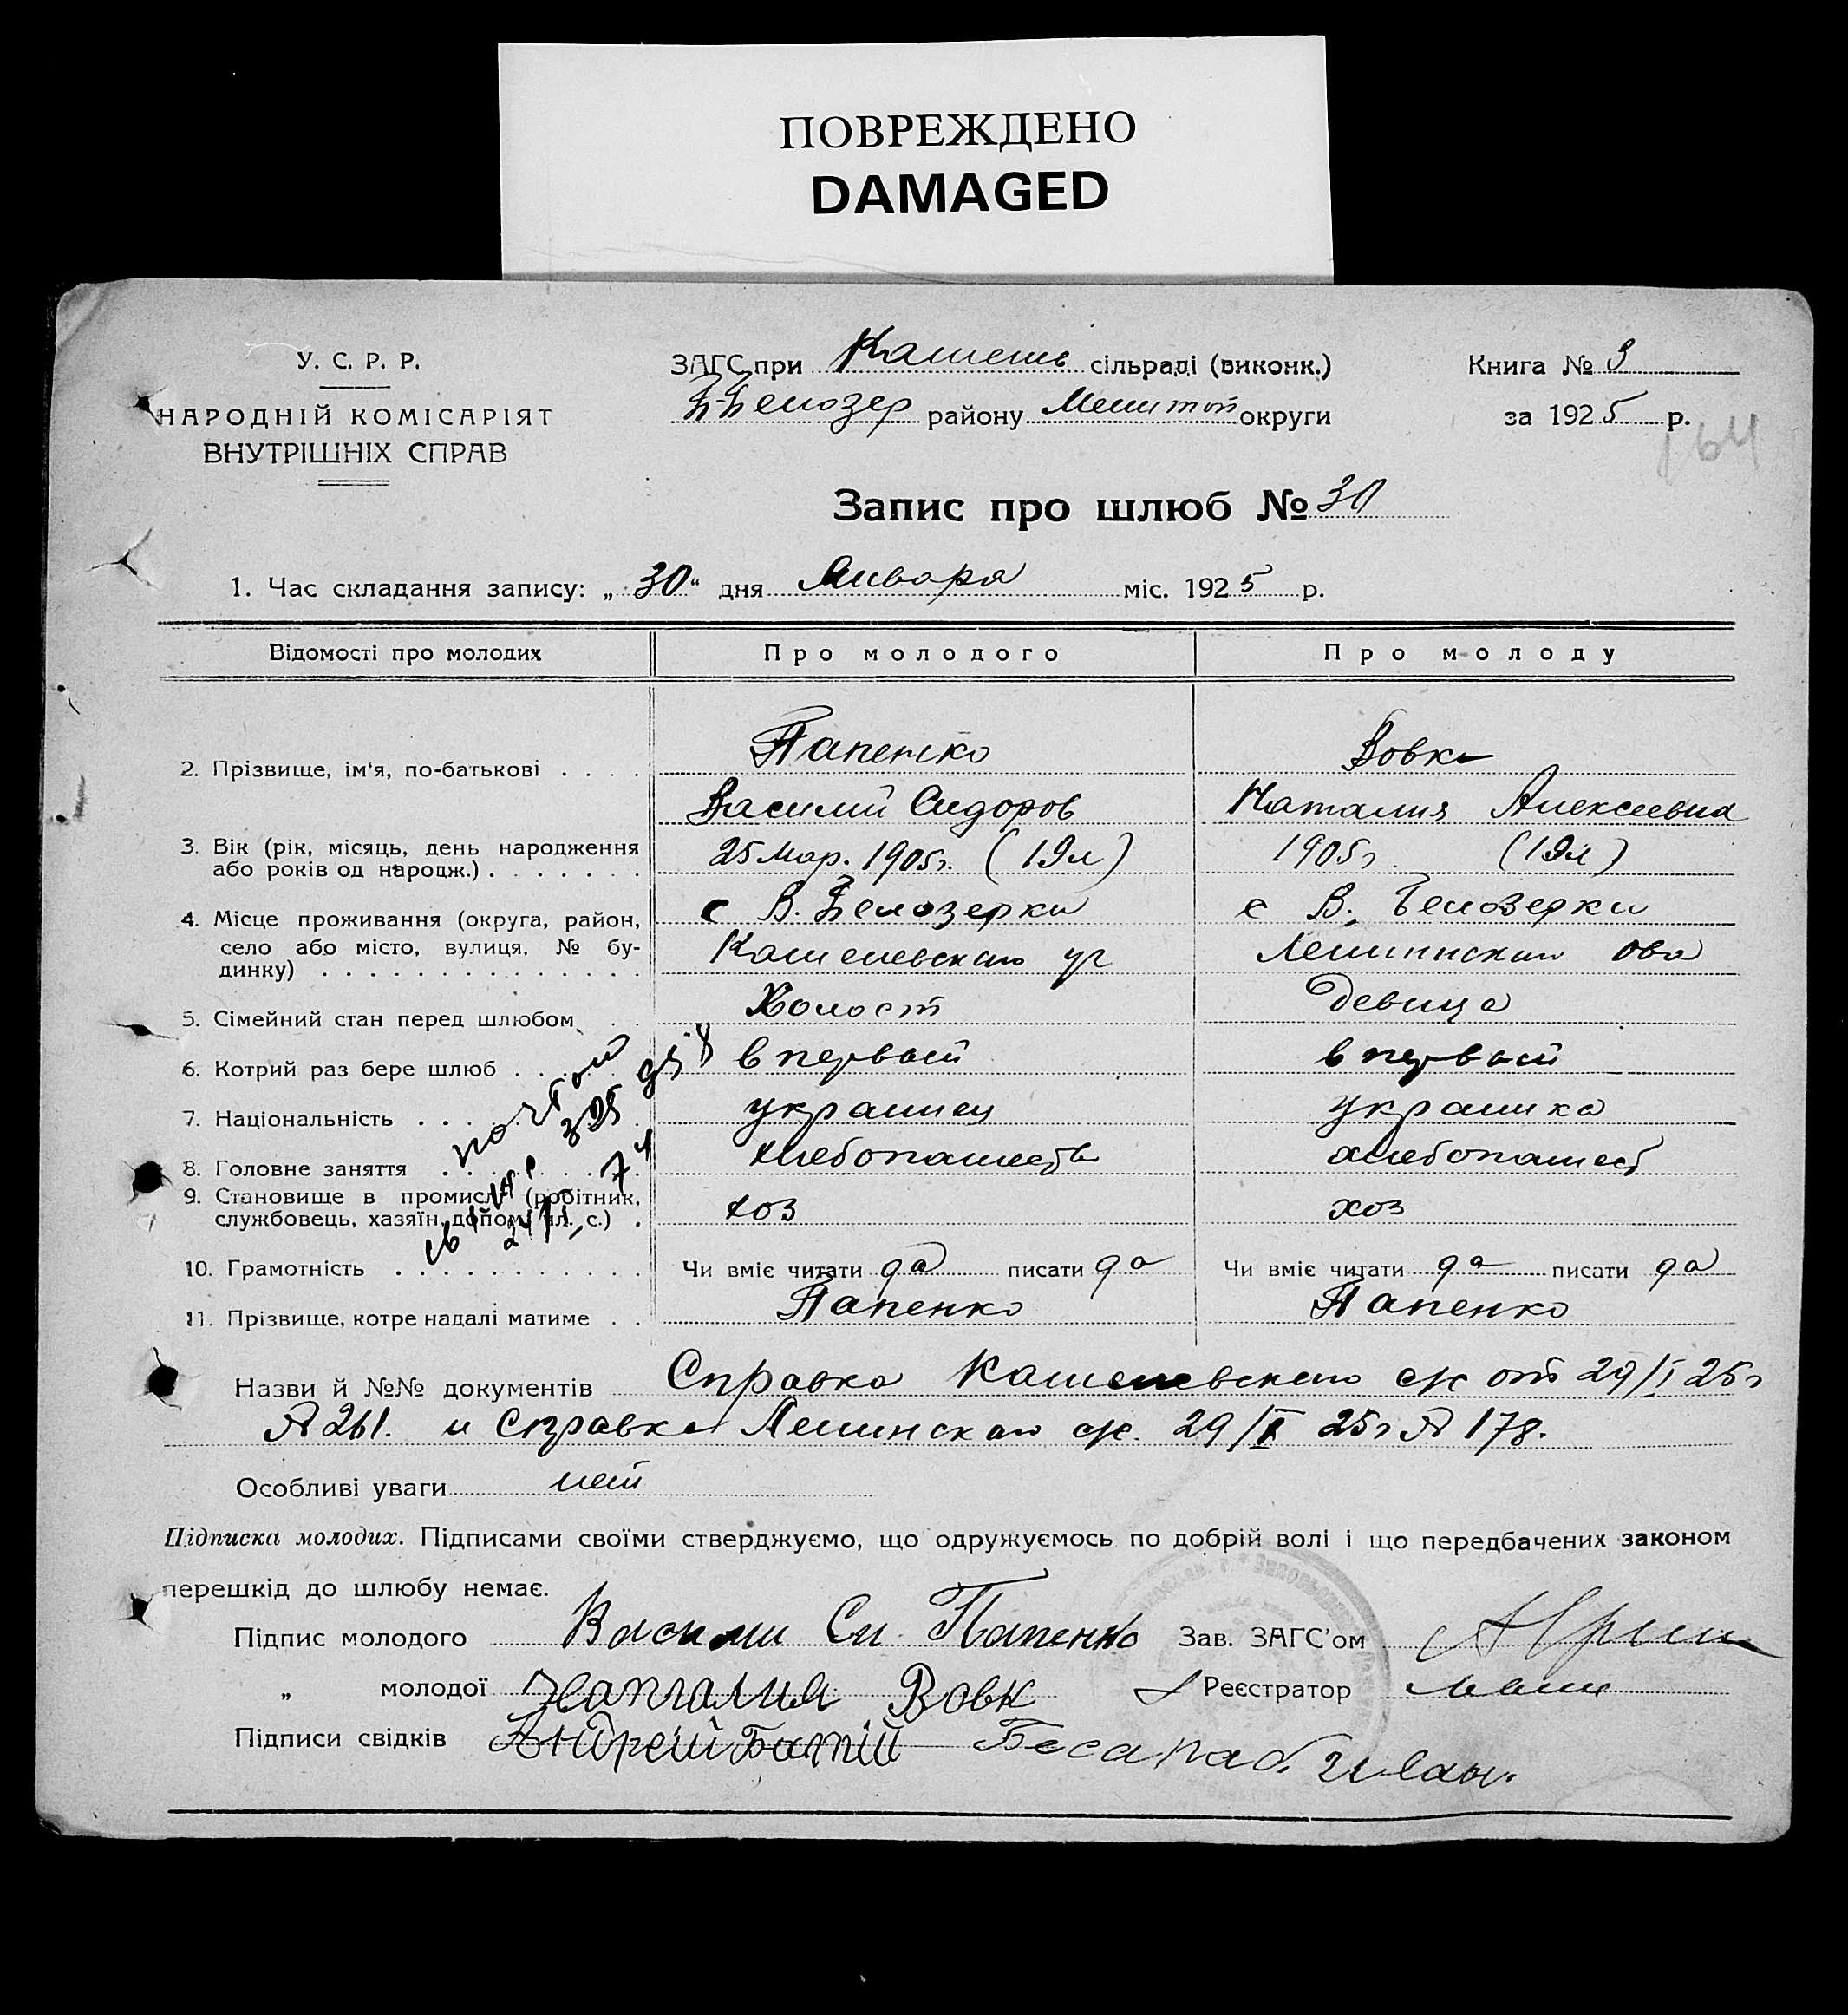 ПОВРЕЖДЕНО
DAMAGED
У. С. Р. Р.
НАРОДНІЙ КОМІСАРІЯТ
ВНУТРІШНІХ СПРАВ
ЗАГС при Камень сільраді (виконк.)
Б-Белозер району Мелитоп округи
Книга № 3
за 1925 р.
164
Запис про шлюб № 30
1. Час складання запису: „30“ дня Января міс. 1925 р.
Відомості про молодих Про молодого Про молоду
2. Прізвище, ім‘я, по-батькові . . . . Папенко Вовк
Василий Сидоров Наталия Алексеевна
3. Вік (рік, місяць, день народження
або років од народж.) . . . . . . . 25 Мар. 1905г. (19л) 1905г. (19л)
4. Місце проживання (округа, район,
село або місто, вулиця, № бу-
динку) . . . . . . . . . . . . . .
с В. Белозерки с В. Белозерки
ог Ленинская ова
5. Сімейний стан перед шлюбом . . Холост Девица
6. Котрий раз бере шлюб . . . . . в первый в первый
7. Національність . . . . украинец украинка
8. Головне заняття . . . хлебопашеств хлебопашест
9. Становище в промислі (робітник,
службовець, хазяїн, допом. чл. с.) . хоз хоз
10. Грамотність . . . . . . . . . . . Чи вміє читати да писати да Чи вміє читати да писати да
11. Прізвище, котре надалі матиме . . Папенко Папенко
Назви й №№ документів Справка с/с от 29/I 25г
№ 261. и Справка Ленинская с/с. 29/I 25г № 178.
Особливі уваги нет
Підписка молодих. Підписами своїми стверджуємо, що одружуємось по добрій волі і що передбачених законом
перешкід до шлюбу немає.
Підпис молодого Васили Си Папенко Зав. ЗАГС’ом
„ молодої Наталия Вовк Реєстратор
Підписи свідків Андрей Батій Бесараб. Иван.